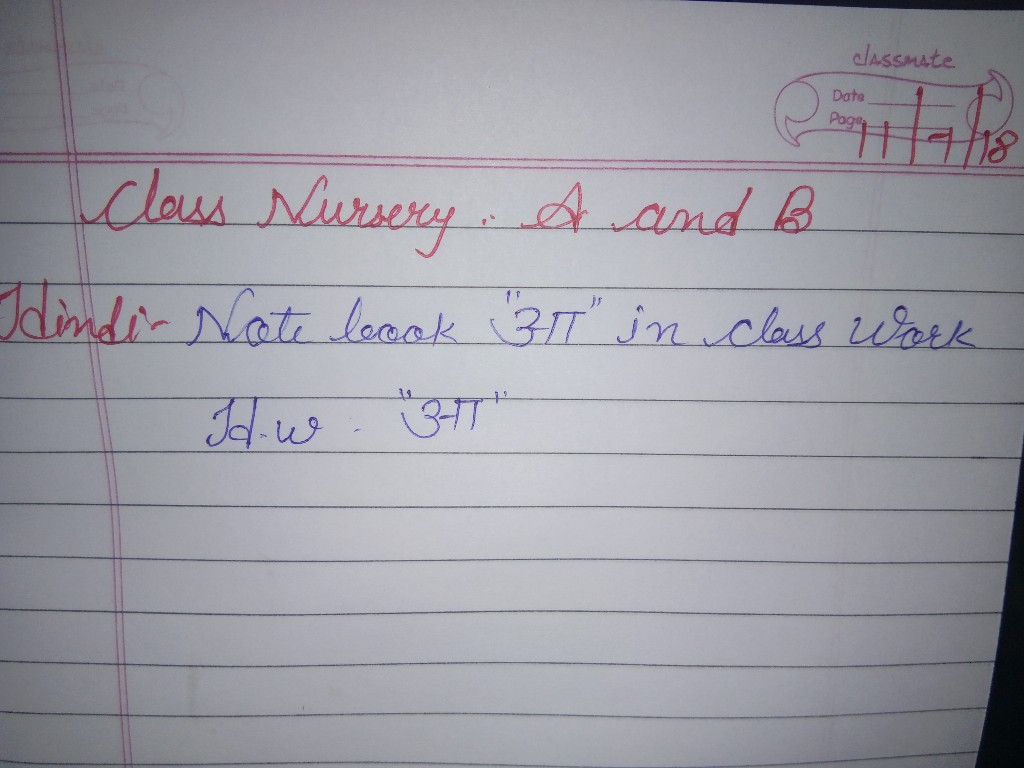 classmate
Date
Page
11/7/18
Class Nursery. A and B
Hindi- Note book "अ" in class Work
H.w. "अ"